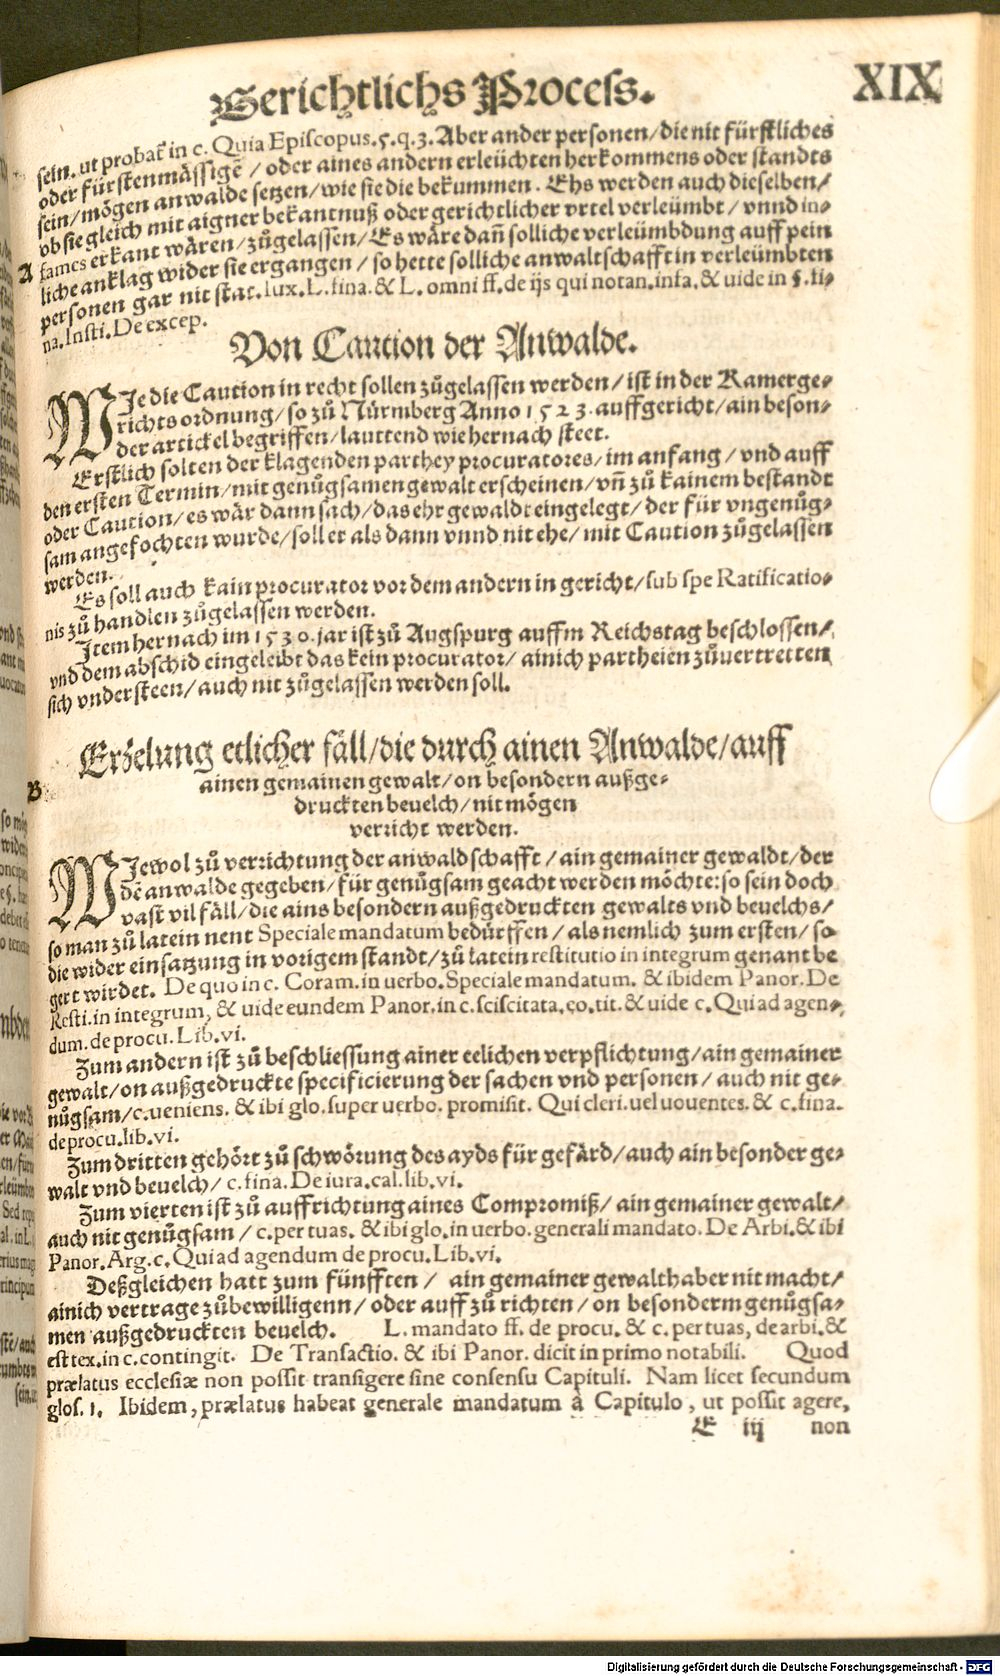 Gerichtlichs Process. XIX
sein. ut probat̄ in c. Quia Episcopus.5.q.3. Aber ander personen/die nit fürstliches
oder fürstenmässigē/oder aines andern erleüchten herkommens oder standts
sein/mögen anwalde setzen/wie sie die bekummen. Ehs werden auch dieselben/
ob sie gleich mit aigner bekantnuß oder gerichtlicher vrtel verleümbt/vnnd in-
A fames erkant wären/zůgelassen/Es wäre dañ solliche verleümbdung auff pein
liche anklag wider sie ergangen/so hette solliche anwaltschafft in verleümbten
personen gar nit stat. lux. L. fina. & L. omni ff. de ijs qui notan. infa. & uide in §. fi-
na. Insti. De excep.
Von Caution der Anwalde.
WJe die Caution in recht sollen zůgelassen werden/ist in der Kamerge-
richts ordnung/so zů Nürmberg Anno 1523. auffgericht/ain beson-
der artickel begriffen/lauttend wie hernach steet.
Erstlich solten der klagenden parthey procuratores/im anfang/vnd auff
den ersten Termin/mit genůgsamen gewalt erscheinen/vñ zů kainem bestandt
oder Caution/es wär dann sach/das ehr gewaldt eingelegt/der für vngenůg-
sam angefochten wurde/soll er als dann vnnd nit ehe/mit Caution zůgelassen
werden.
Es soll auch kain procurator vor dem andern in gericht/sub spe Ratificatio-
nis zů handlen zůgelassen werden.
Jtem hernach im 1530. jar ist zů Augspurg auffm Reichstag beschlossen/
vnd dem abschid eingeleibt das kein procurator/ainich partheien zůuertretten
sich vndersteen/auch nit zůgelassen werden soll.
Erzelung etlicher fäll/die durch ainen Anwalde/auff
B ainen gemainen gewalt/on besondern außge-
druckten beuelch/nit mögen
verricht werden.
WJewol zů verrichtung der anwaldschafft/ain gemainer gewaldt/der
dē anwalde gegeben/für genůgsam geacht werden möchte: so sein doch
vast vil fäll/die ains besondern außgedruckten gewalts vnd beuelchs/
so man zů latein nent Speciale mandatum bedürffen/als nemlich zum ersten/so
die wider einsatzung in vorigem standt/zů latein restitutio in integrum genant be
gert wirdet. De quo in c. Coram. in uerbo. Speciale mandatum. & ibidem Panor. De
Resti. in integrum, & uide eundem Panor. in c. sciscitata. eo. tit. & uide c. Qui ad agen-
dum. de procu. Lib. vi.
Zum andern ist zů beschliessung ainer eelichen verpflichtung/ain gemainer
gewalt/on außgedruckte specificierung der sachen vnd personen/auch nit ge-
nůgsam/c. ueniens. & ibi glo. super uerbo. promisit. Qui cleri. uel uouentes. & c. fina.
de procu. lib. vi.
Zum dritten gehört zů schwörung des ayds für gefärd/auch ain besonder ge-
walt vnd beuelch/c. fina. De iura. cal. lib. vi.
Zum vierten ist zů auffrichtung aines Compromiß/ain gemainer gewalt/
auch nit genůgsam/c. per tuas. & ibi glo. in uerbo. generali mandato. De Arbi. & ibi
Panor. Arg. c. Qui ad agendum de procu. Lib. vi.
Deßgleichen hatt zum fünfften/ain gemainer gewalthaber nit macht/
ainich vertrage zůbewilligenn/oder auff zů richten/on besonderm genůgsa-
men außgedruckten beuelch. L. mandato ff. de procu. & c. per tuas, de arbi. &
est tex. in c. contingit. De Transactio. & ibi Panor. dicit in primo notabili. Quod
prælatus ecclesiæ non possit transigere sine consensu Capituli. Nam licet secundum
glos. 1. Ibidem, prælatus habeat generale mandatum à Capitulo, ut possit agere,
E iij non
Digitalisierung gefördert durch die Deutsche Forschungsgemeinschaft - DFG